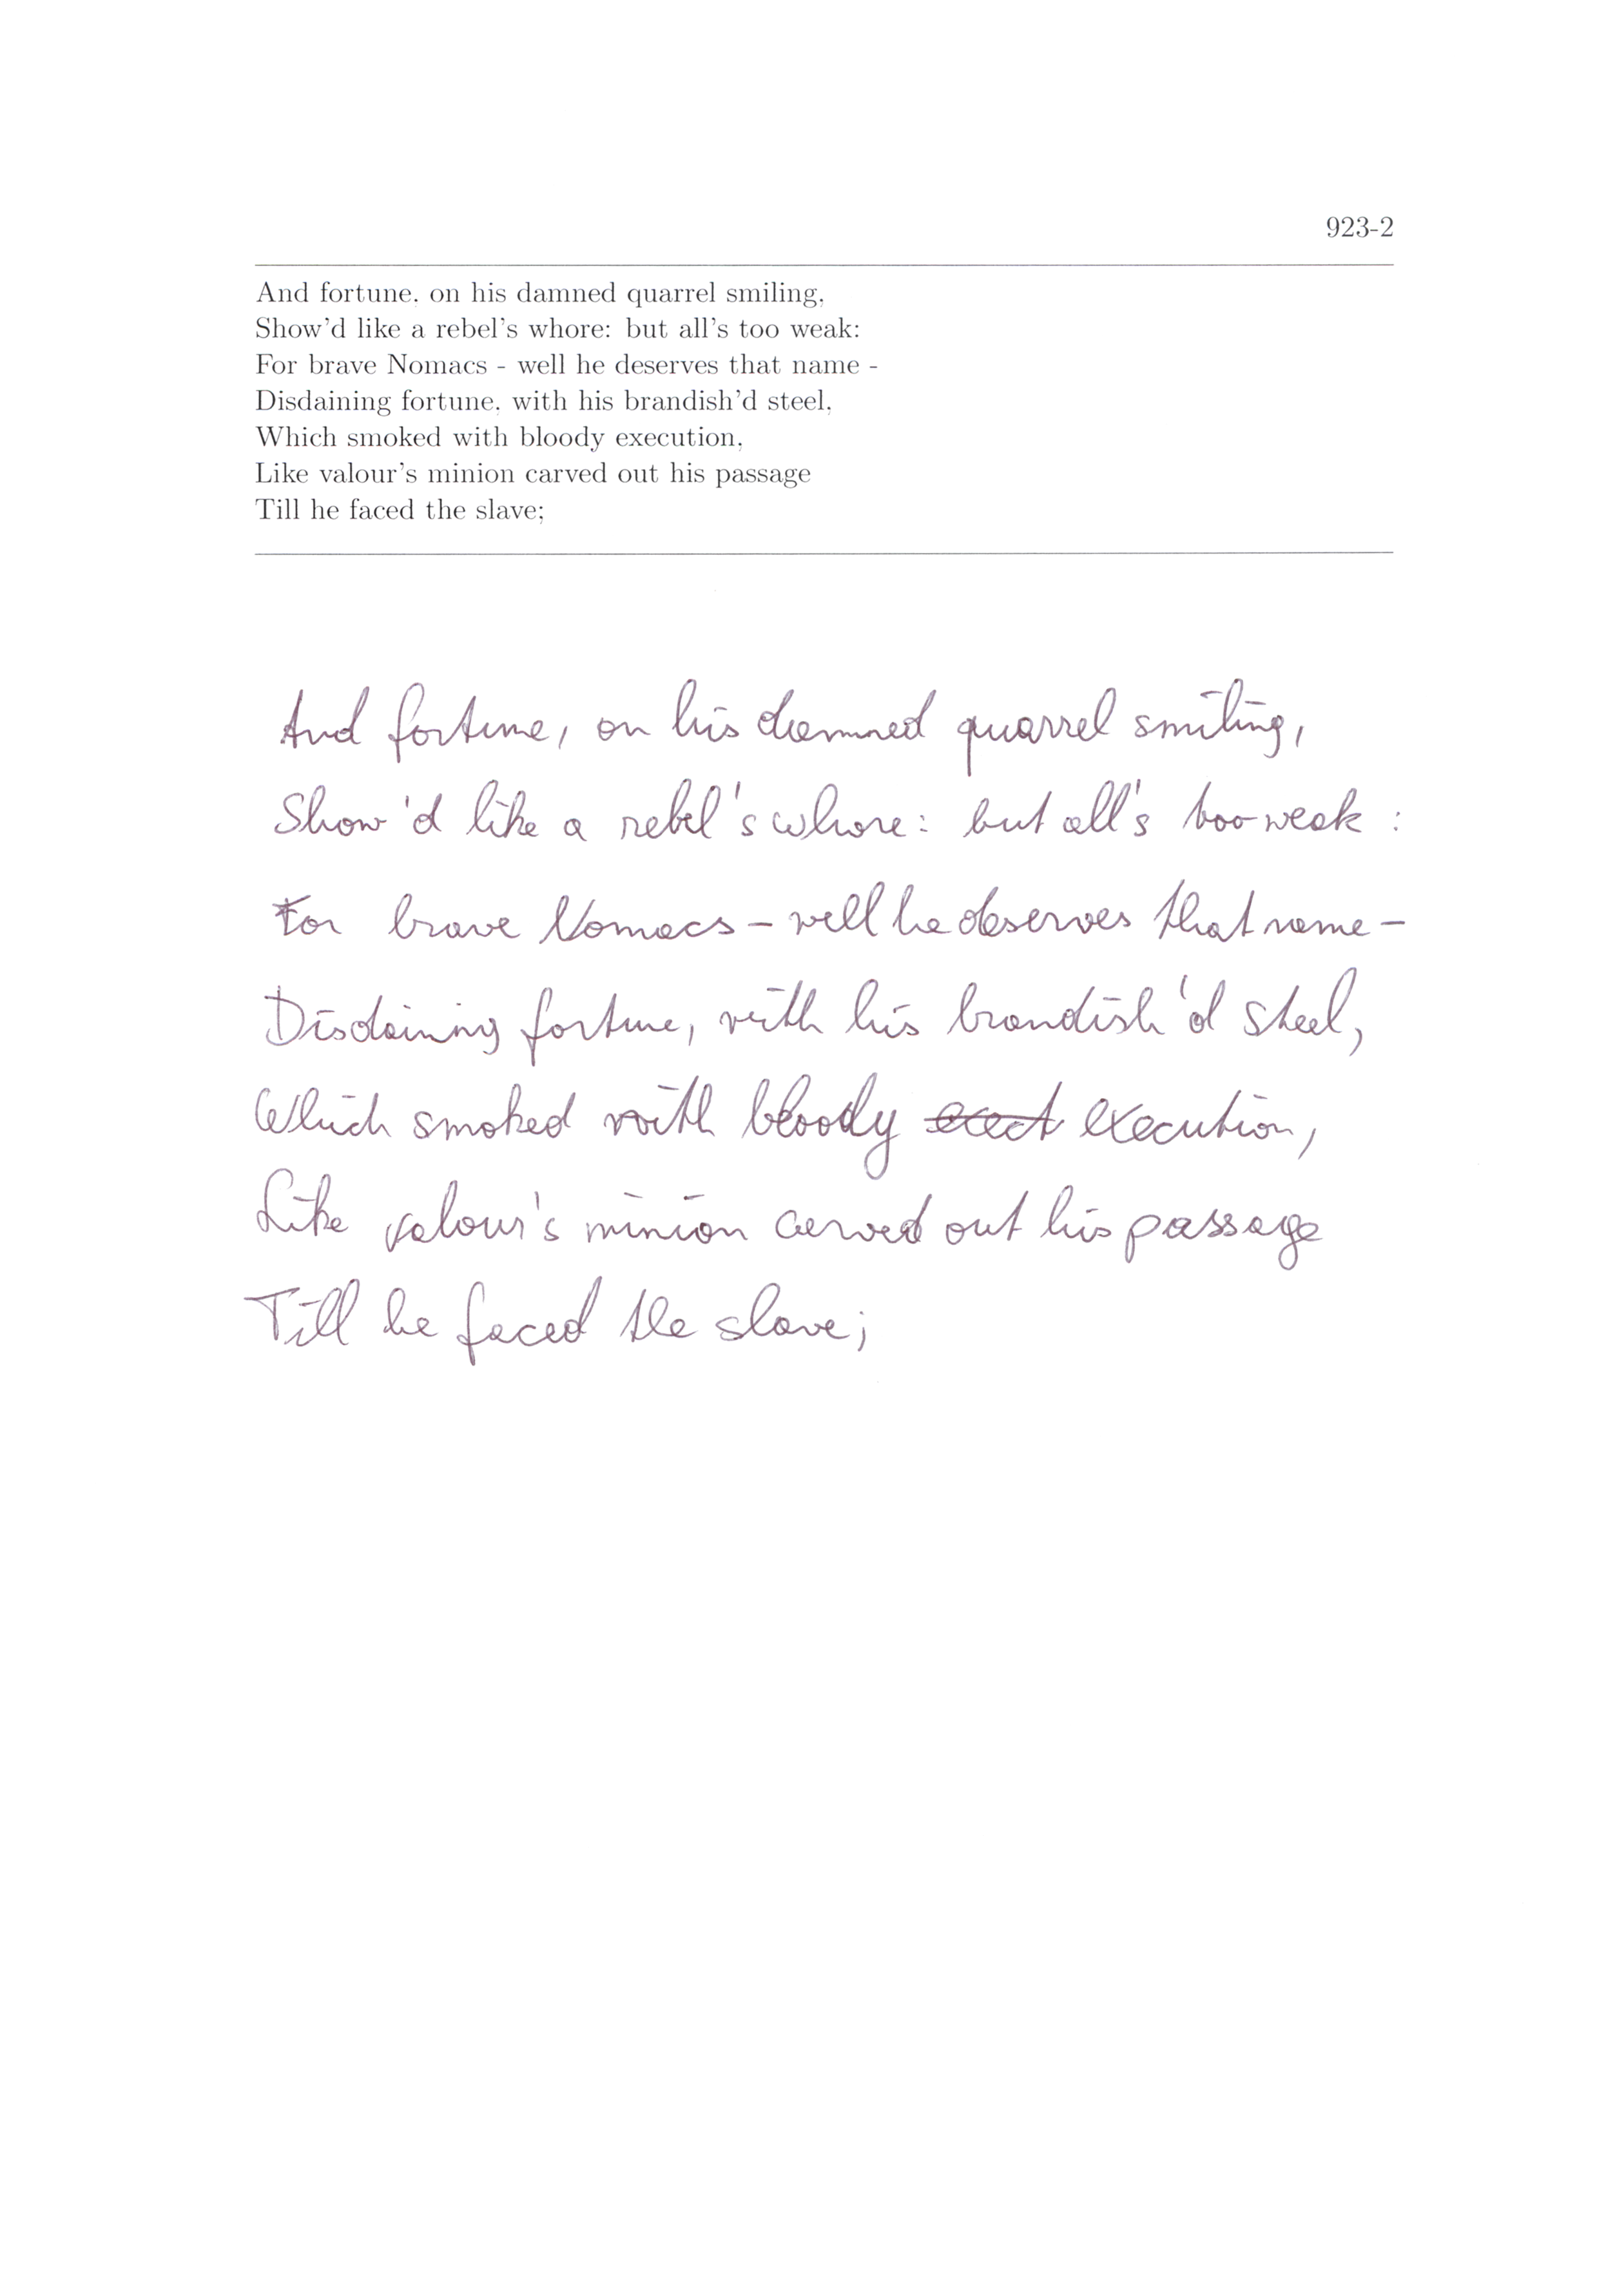 923-2
And fortune, on his damned quarrel smiling,
Show'd like a rebel's whore: but all's too weak:
For brave Nomacs - well he deserves that name -
Disdaining fortune, with his brandish'd steel,
Which smoked with bloody execution,
Like valour's minion carved out his passage
Till he faced the slave;
And fortune, on his damned quarrel smiling,
Show'd like a rebel's whore: but all's too weak:
For brave Nomacs - well he deserves that name -
Disdaining fortune, with his brandish'd steel,
Which smoked with bloody execution,
Like valour's minion carved out his passage
Till he faced the slave;